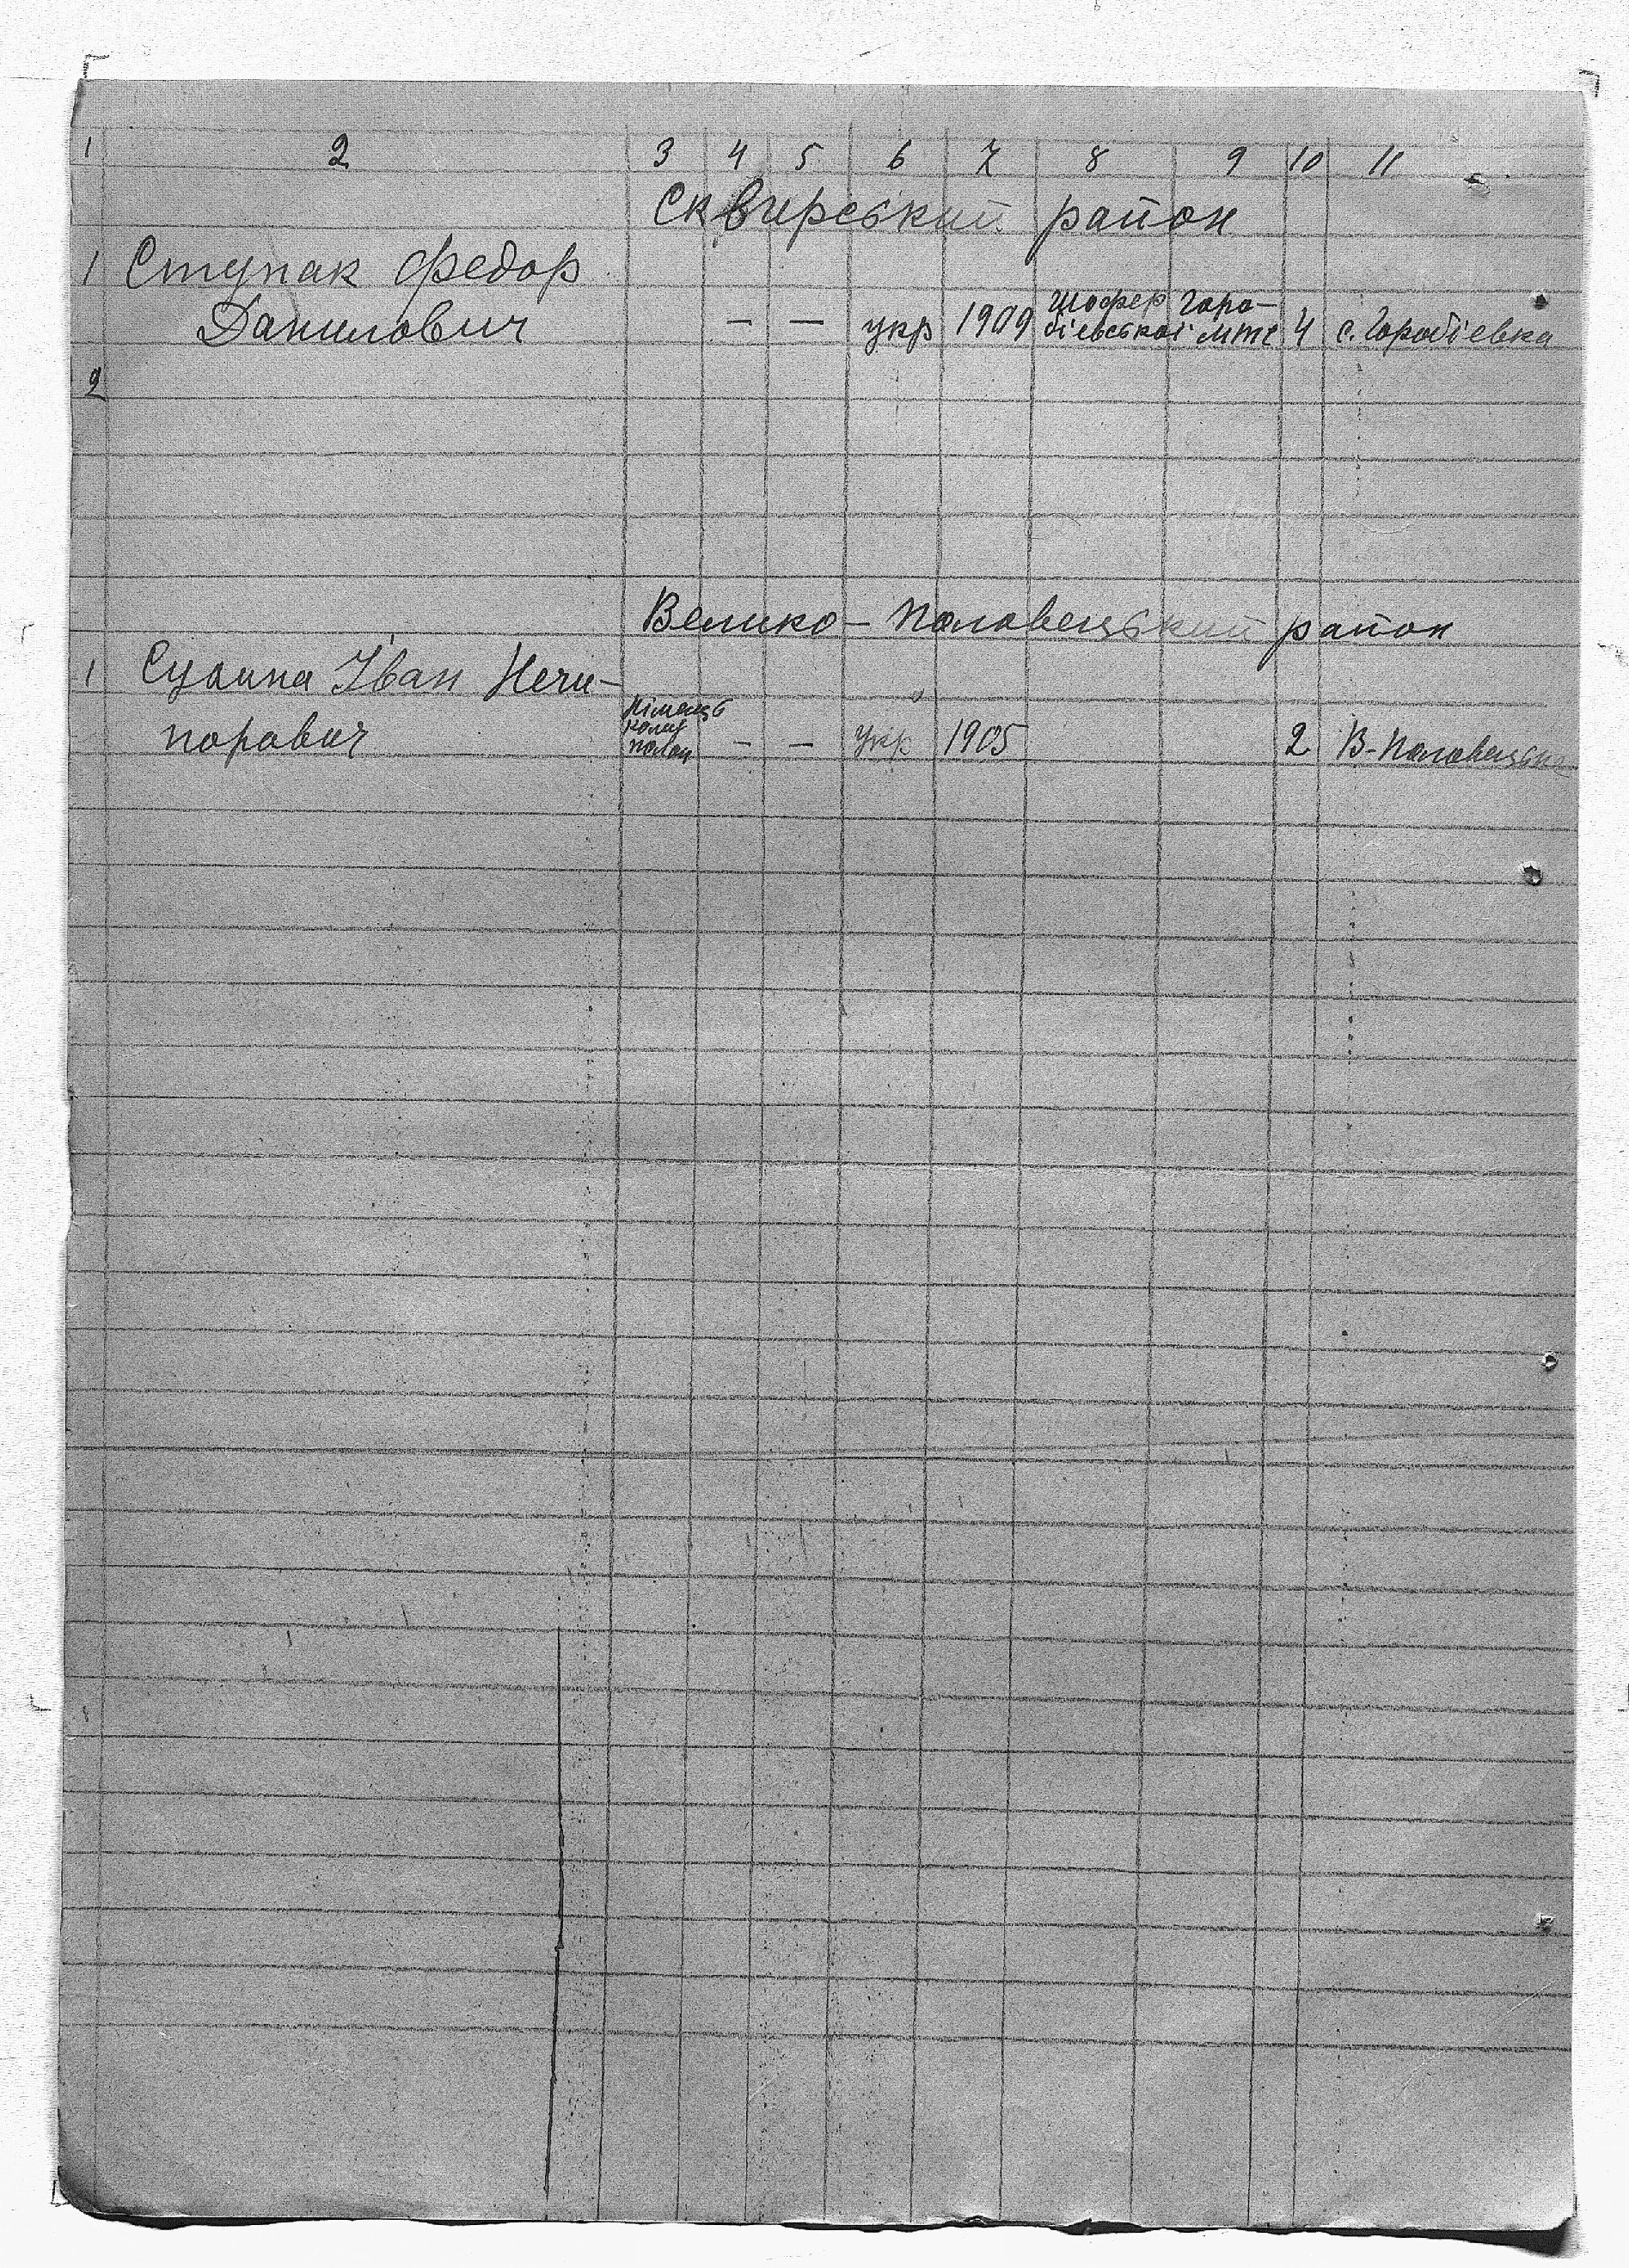 1 2 3 4 5 6 7 8 9 10 11
Сквирський район
1 Ступак Федор
Данилович — — укр 1909 Шофер Горо-
бієвської МТС 4 с. Горобієвка
2
Велико-Половецький район
1 Іван Нечи-
порович — — укр 1905 2 В-Половецьке